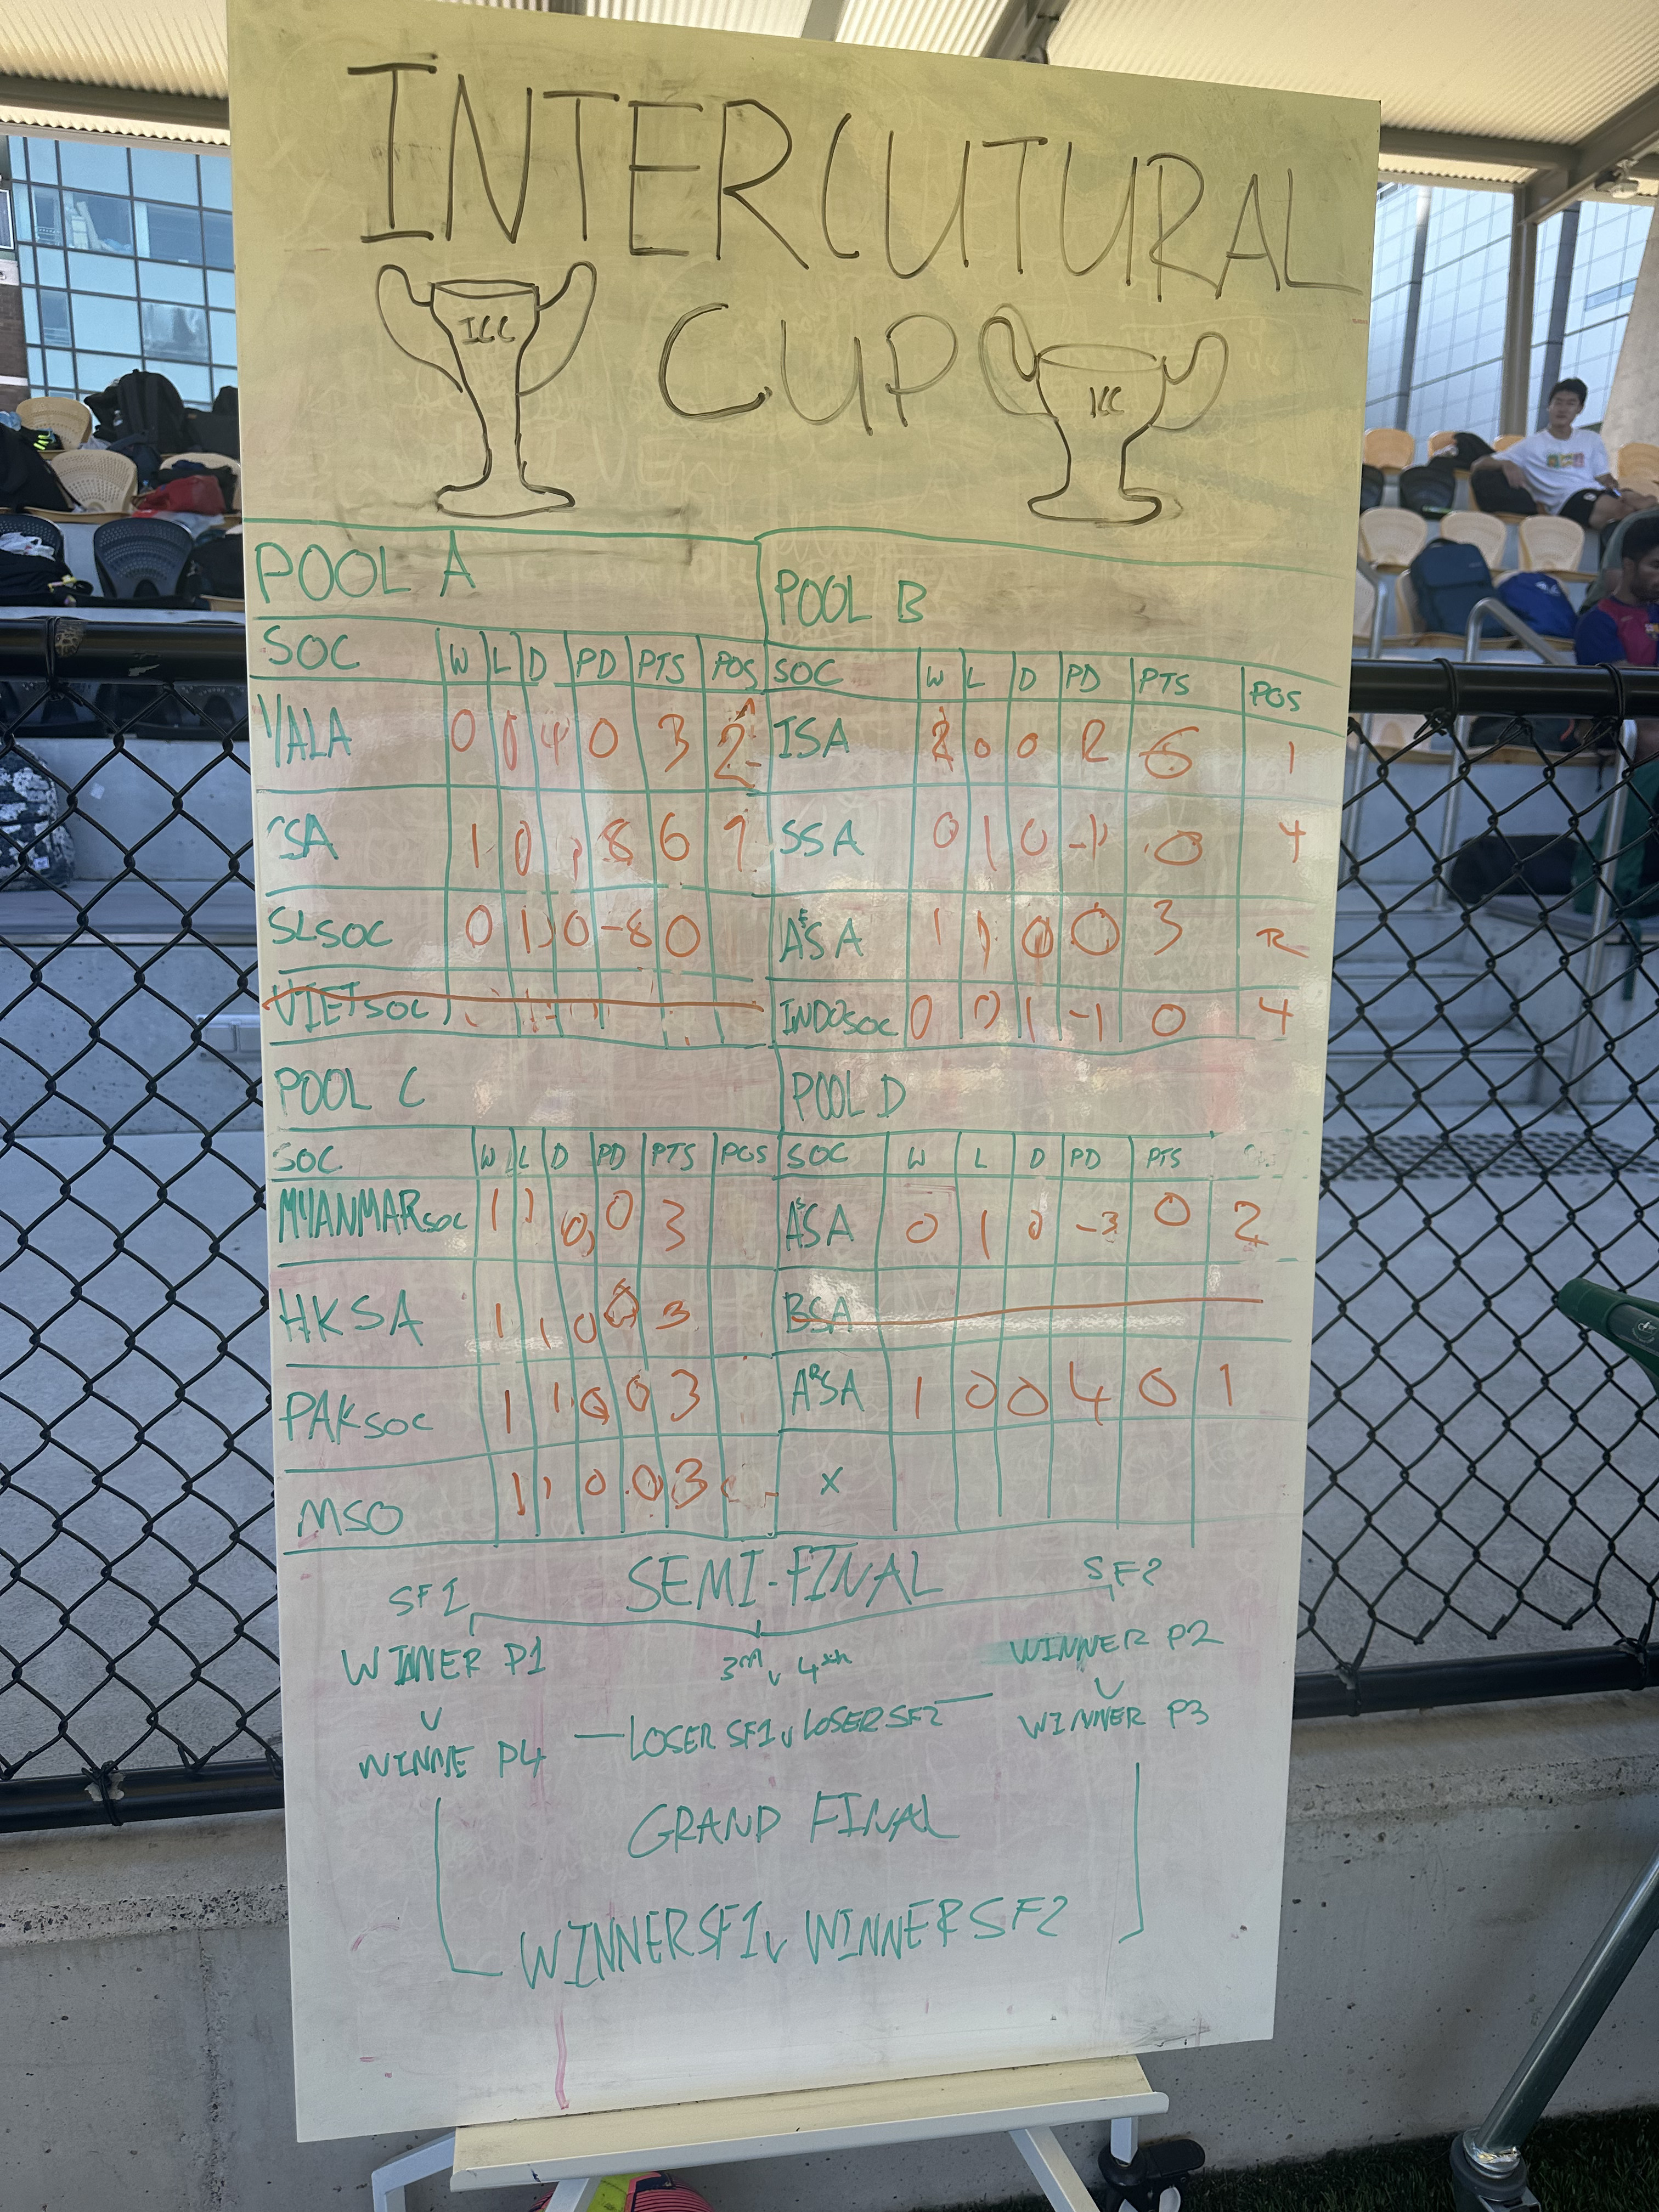 INTERCUTURAL
CUP
ICC
ICC
POOL A
SOC W L D PD PTS POS
YALA 0 0 0 3 2
SA 1 0 8 6
SLSOC 0 1 0 -8 0
VIETSOC
POOL B
SOC W L D PD PTS POS
ISA 2 0 0 2 6 1
SSA 0 1 0 -1 0 4
AESA 1 1 0 0 3 2
INDOSOC 0 0 1 -1 0 4
POOL C
SOC W L D PD PTS POS
MYANMARSOC 1 1 0 0 3
HKSA 1 1 0 0 3
PAKSOC 1 1 0 0 3
MSO 1 1 0 0 3
POOL D
SOC W L D PD PTS
ASSA 0 1 0 -3 0 2
BSA
ARSA 1 0 0 4 0 1
X
SEMI-FINAL
SF1
WINNER P1
V
WINNE P4
3rd v 4th
LOSER SF1 v LOSER SF2
SF2
WINNER P2
V
WINNER P3
GRAND FINAL
WINNER SF1 v WINNER SF2